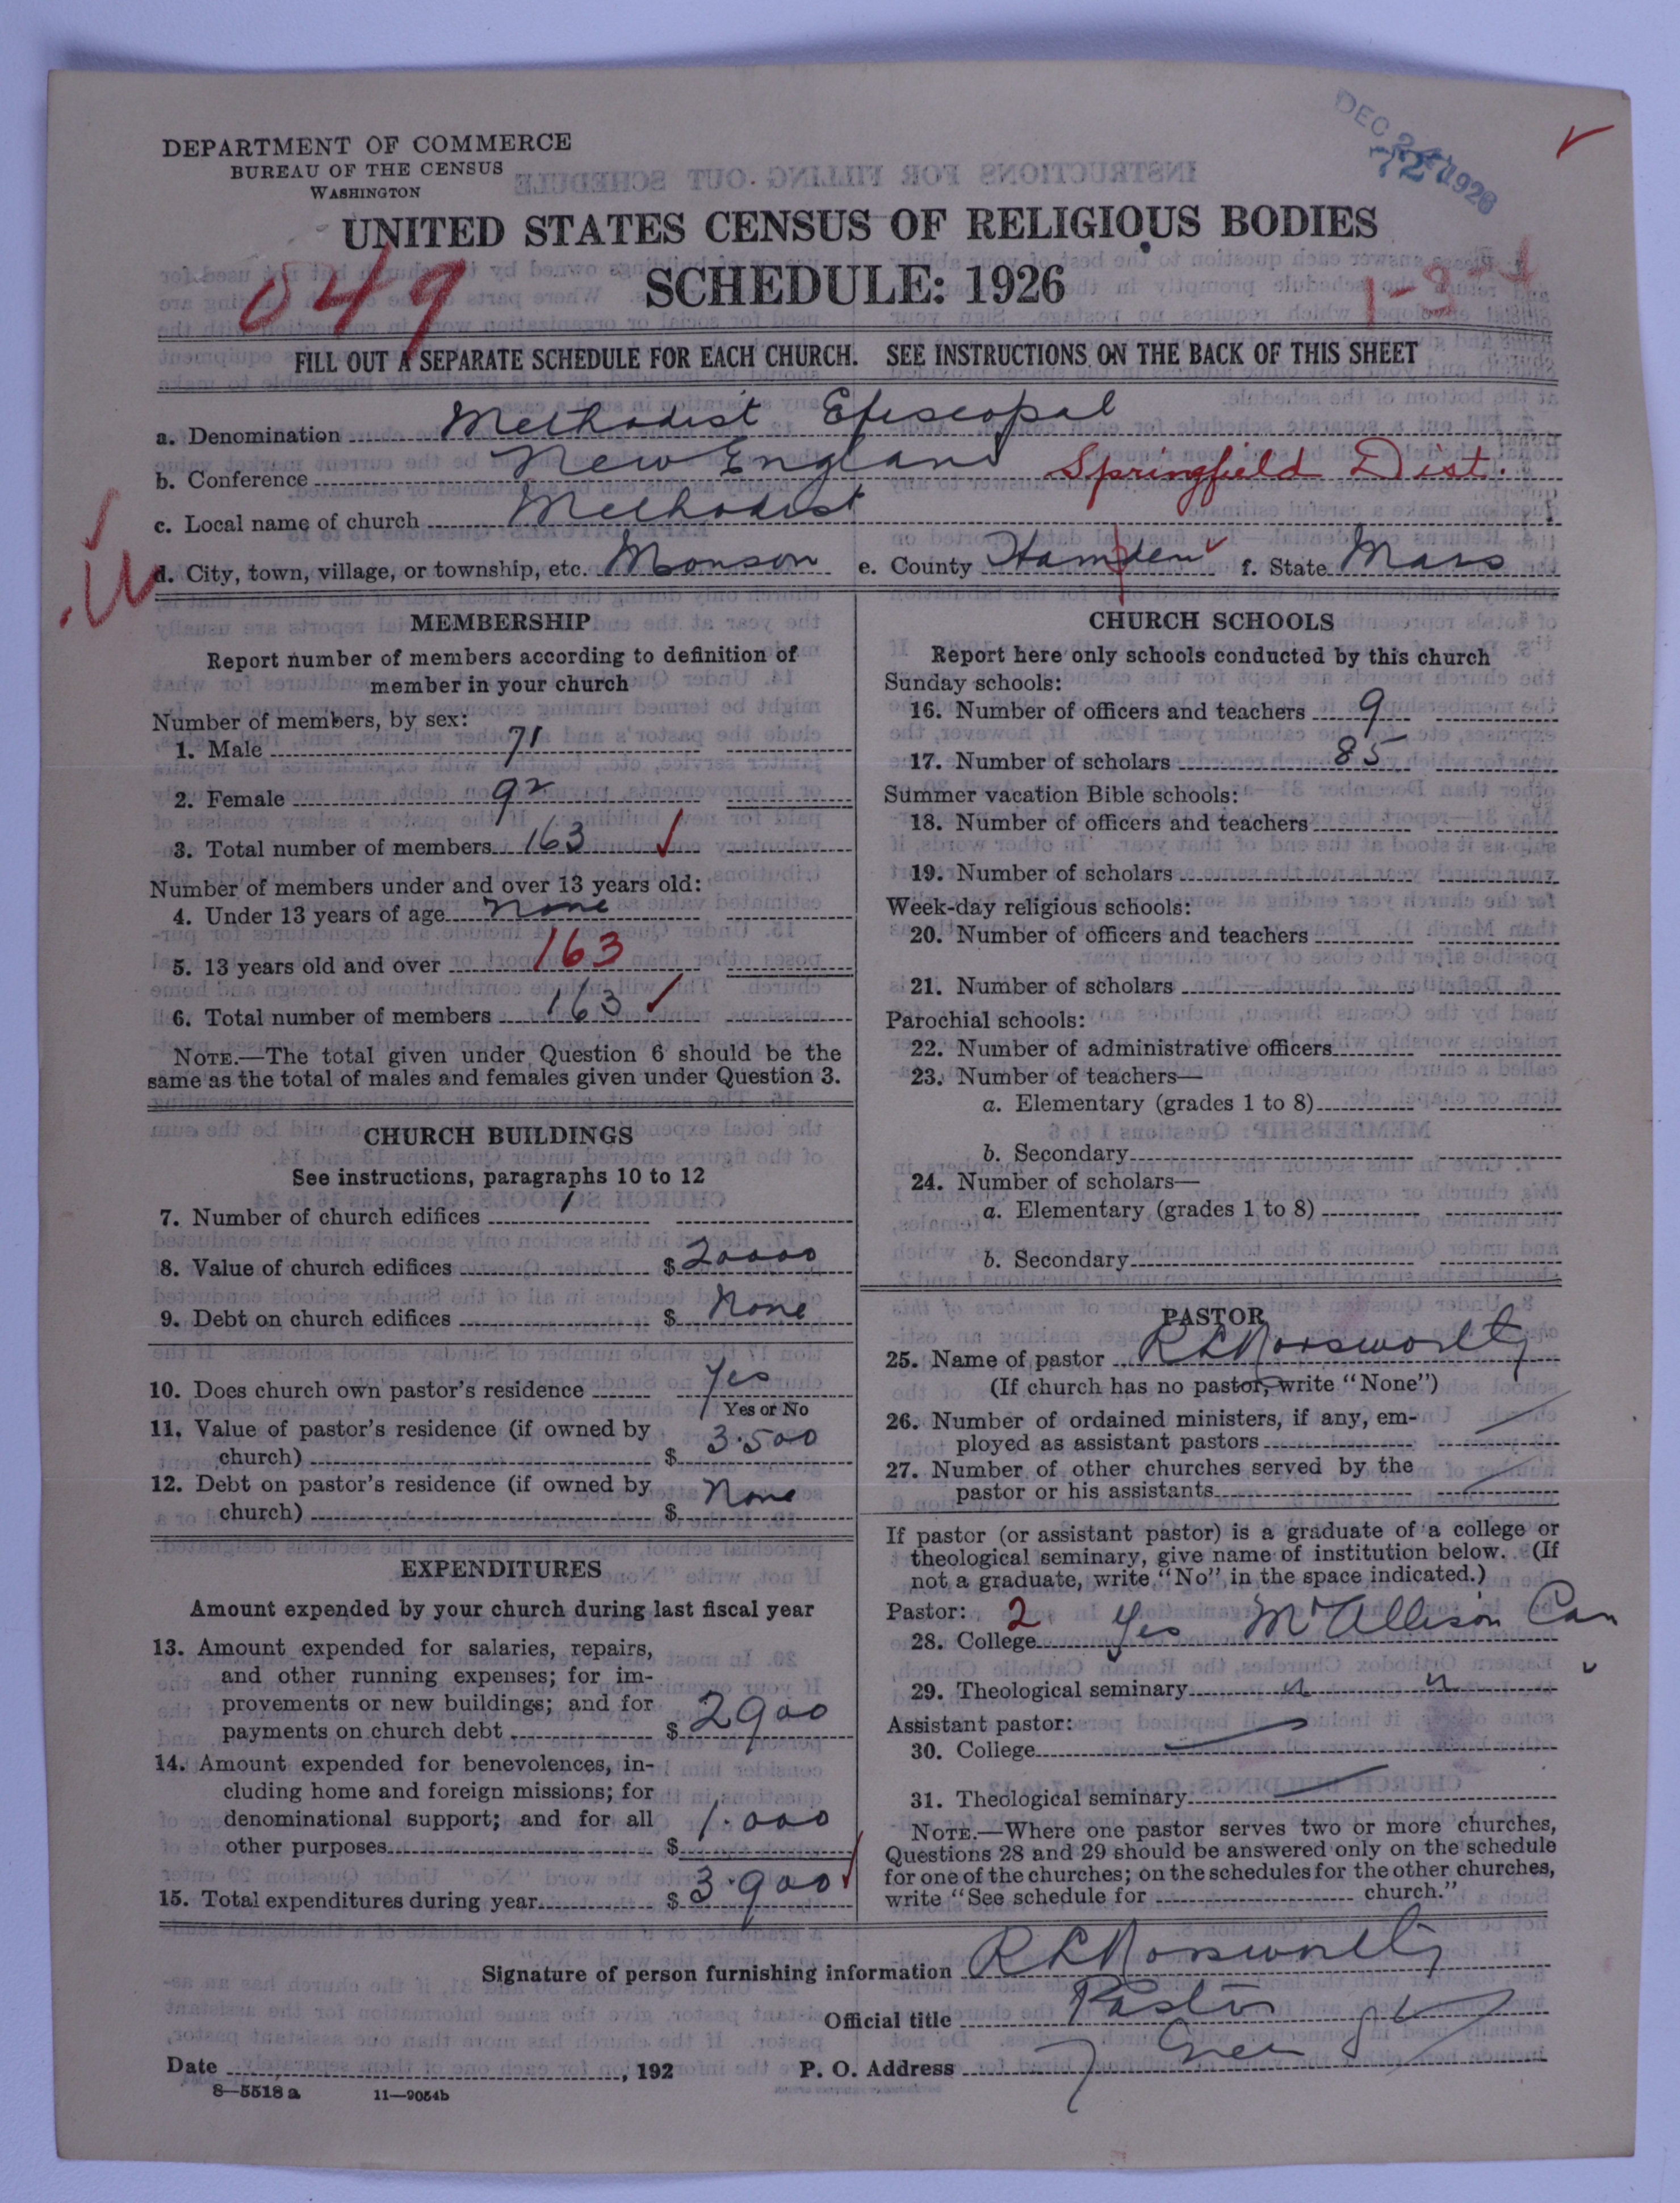 DEPARTMENT OF COMMERCE
BUREAU OF THE CENSUS
WASHINGTON
DEC 1926
72
UNITED STATES CENSUS OF RELIGIOUS BODIES
SCHEDULE: 1926
049
1-3-4
FILL OUT A SEPARATE SCHEDULE FOR EACH CHURCH. SEE INSTRUCTIONS ON THE BACK OF THIS SHEET
a. Denomination Methodist Episcopal
b. Conference New England Springfield Dist.
c. Local name of church Methodist
d. City, town, village, or township, etc. Monson e. County Hampden f. State Mass
MEMBERSHIP
Report number of members according to definition of
member in your church
Number of members, by sex:
1. Male 71
2. Female 92
3. Total number of members 163
Number of members under and over 13 years old:
4. Under 13 years of age None
5. 13 years old and over 163
6. Total number of members 163
NOTE.—The total given under Question 6 should be the
same as the total of males and females given under Question 3.
CHURCH BUILDINGS
See instructions, paragraphs 10 to 12
7. Number of church edifices 1
8. Value of church edifices $ 20000
9. Debt on church edifices $ None
10. Does church own pastor's residence Yes
Yes or No
11. Value of pastor's residence (if owned by
church) $ 3.500
12. Debt on pastor's residence (if owned by
church) $ None
EXPENDITURES
Amount expended by your church during last fiscal year
13. Amount expended for salaries, repairs,
and other running expenses; for im-
provements or new buildings; and for
payments on church debt $ 2900
14. Amount expended for benevolences, in-
cluding home and foreign missions; for
denominational support; and for all
other purposes $ 1.000
15. Total expenditures during year $ 3.900
CHURCH SCHOOLS
Report here only schools conducted by this church
Sunday schools:
16. Number of officers and teachers 9
17. Number of scholars 85
Summer vacation Bible schools:
18. Number of officers and teachers
19. Number of scholars
Week-day religious schools:
20. Number of officers and teachers
21. Number of scholars
Parochial schools:
22. Number of administrative officers
23. Number of teachers—
a. Elementary (grades 1 to 8)
b. Secondary
24. Number of scholars—
a. Elementary (grades 1 to 8)
b. Secondary
PASTOR
25. Name of pastor
(If church has no pastor, write "None")
26. Number of ordained ministers, if any, em-
ployed as assistant pastors
27. Number of other churches served by the
pastor or his assistants
If pastor (or assistant pastor) is a graduate of a college or
theological seminary, give name of institution below. (If
not a graduate, write "No" in the space indicated.)
Pastor: 2
28. College Yes Mt Allison Can
29. Theological seminary " "
Assistant pastor:
30. College
31. Theological seminary
NOTE.—Where one pastor serves two or more churches,
Questions 28 and 29 should be answered only on the schedule
for one of the churches; on the schedules for the other churches,
write "See schedule for church."
Signature of person furnishing information
Official title Pastor
Date , 192 P. O. Address
8—5518 a 11—9054b